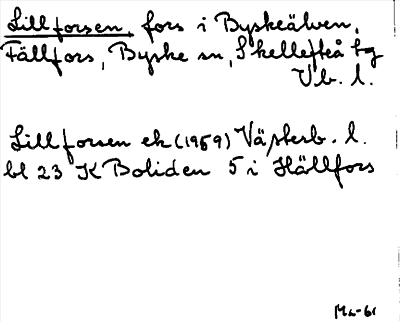 Lillforsen, fors i Byskeälven,
Fällfors, Byske sn, Skellefteå tg
Vb. l.
Lillforsen ek (1959) Västerb. l.
bl 23 K Boliden 5 i Hällfors
Ma-61